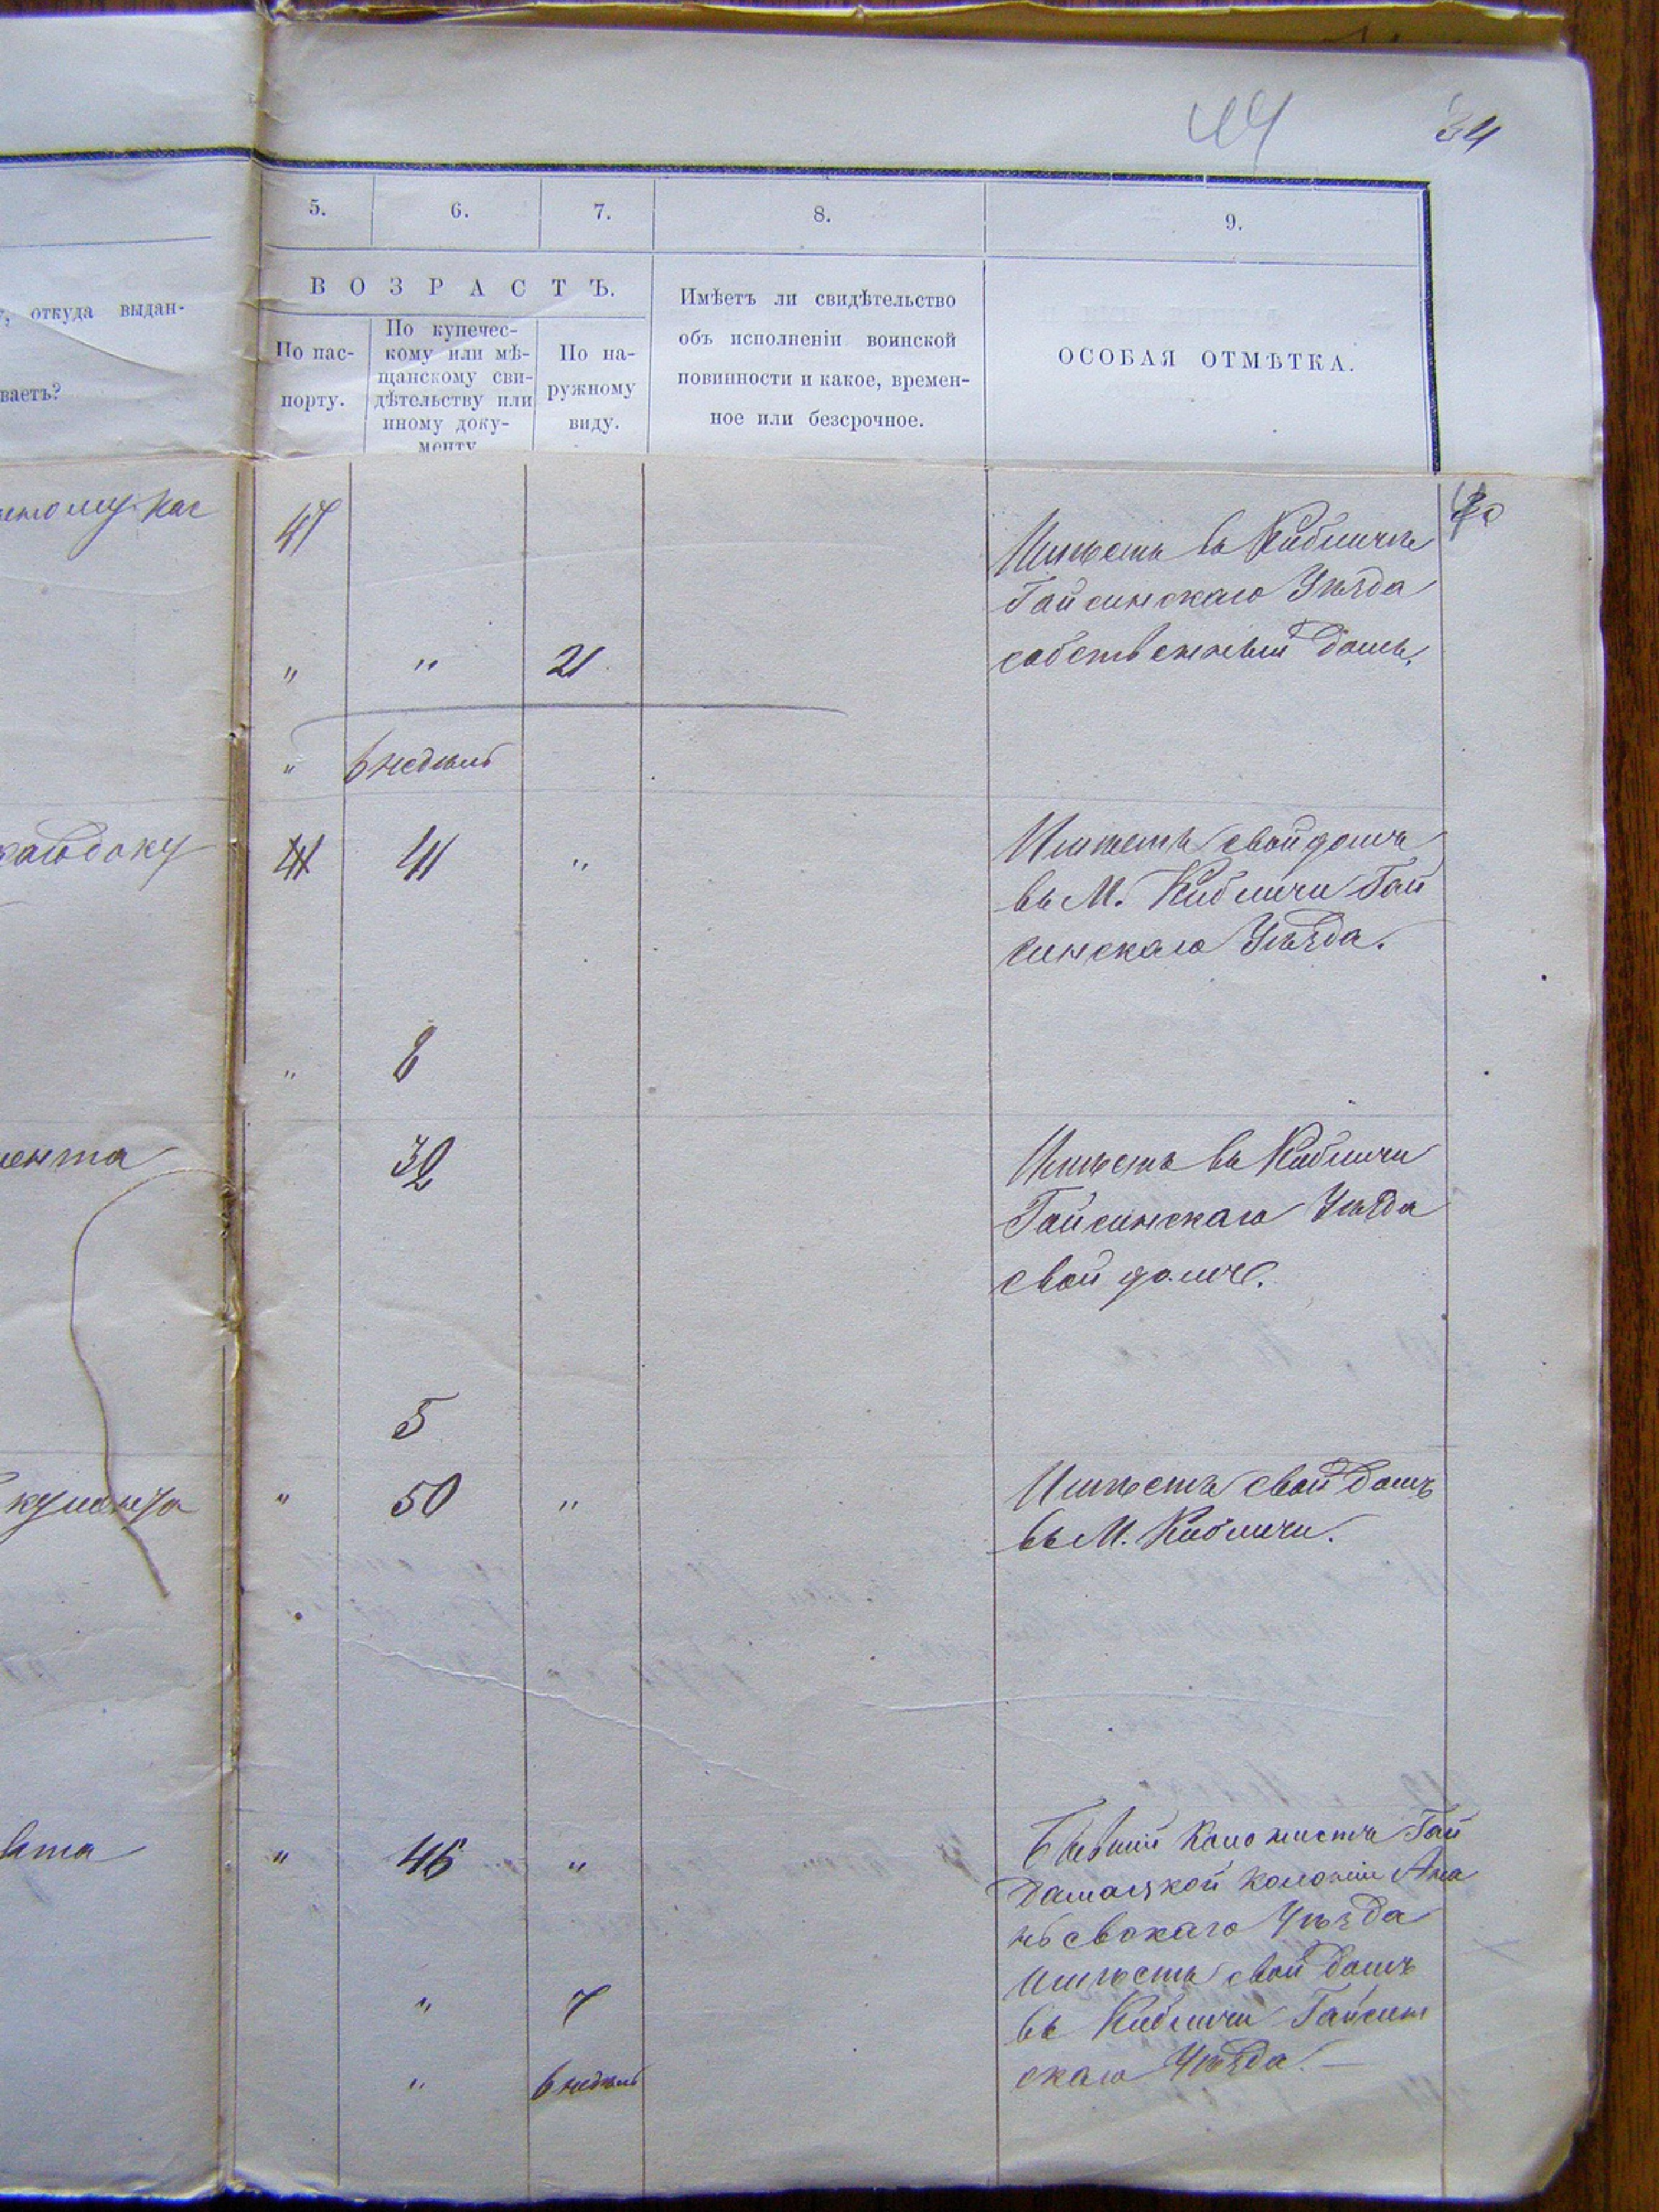 44 34
5. 6. 7. 8. 9.
ВОЗРАСТЪ.
, откуда выдан-
ваетъ?
По пас-
порту.
По купечес-
кому или мѣ-
щанскому сви-
дѣтельству или
иному доку-
менту
По на-
ружному
виду.
Имѣетъ ли свидѣтельство
объ исполненіи воинской
повинности и какое, времен-
ное или безсрочное.
ОСОБАЯ ОТМѢТКА.
47
Имѣетъ въ Кибличѣ
Гайсинскаго Уѣзда
собственный домъ.
" " 21
" 6 недѣль
41 41 "
Имѣетъ свой домъ
въ М. Кибличи Гай
синскаго Уѣзда.
" 8
мента
32
Имѣетъ въ Кибличи
Гайсинскаго Уѣзда
свой домъ.
5
кумента
" 50 "
Имѣетъ свой домъ
въ М. Кибличи.
" 46 "
Бывшій колонистъ Гай
дамацкой колоніи Ана
нь евскаго Уѣзда
имѣетъ свой домъ
въ Кибличи Гайсин
скаго Уѣзда. —
" 7
" 6 недѣль